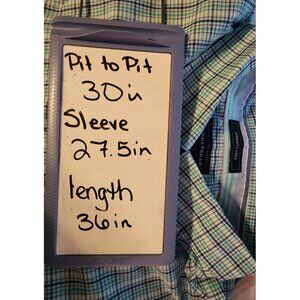 Pit to Pit
30in
Sleeve
27.5in
length
36in